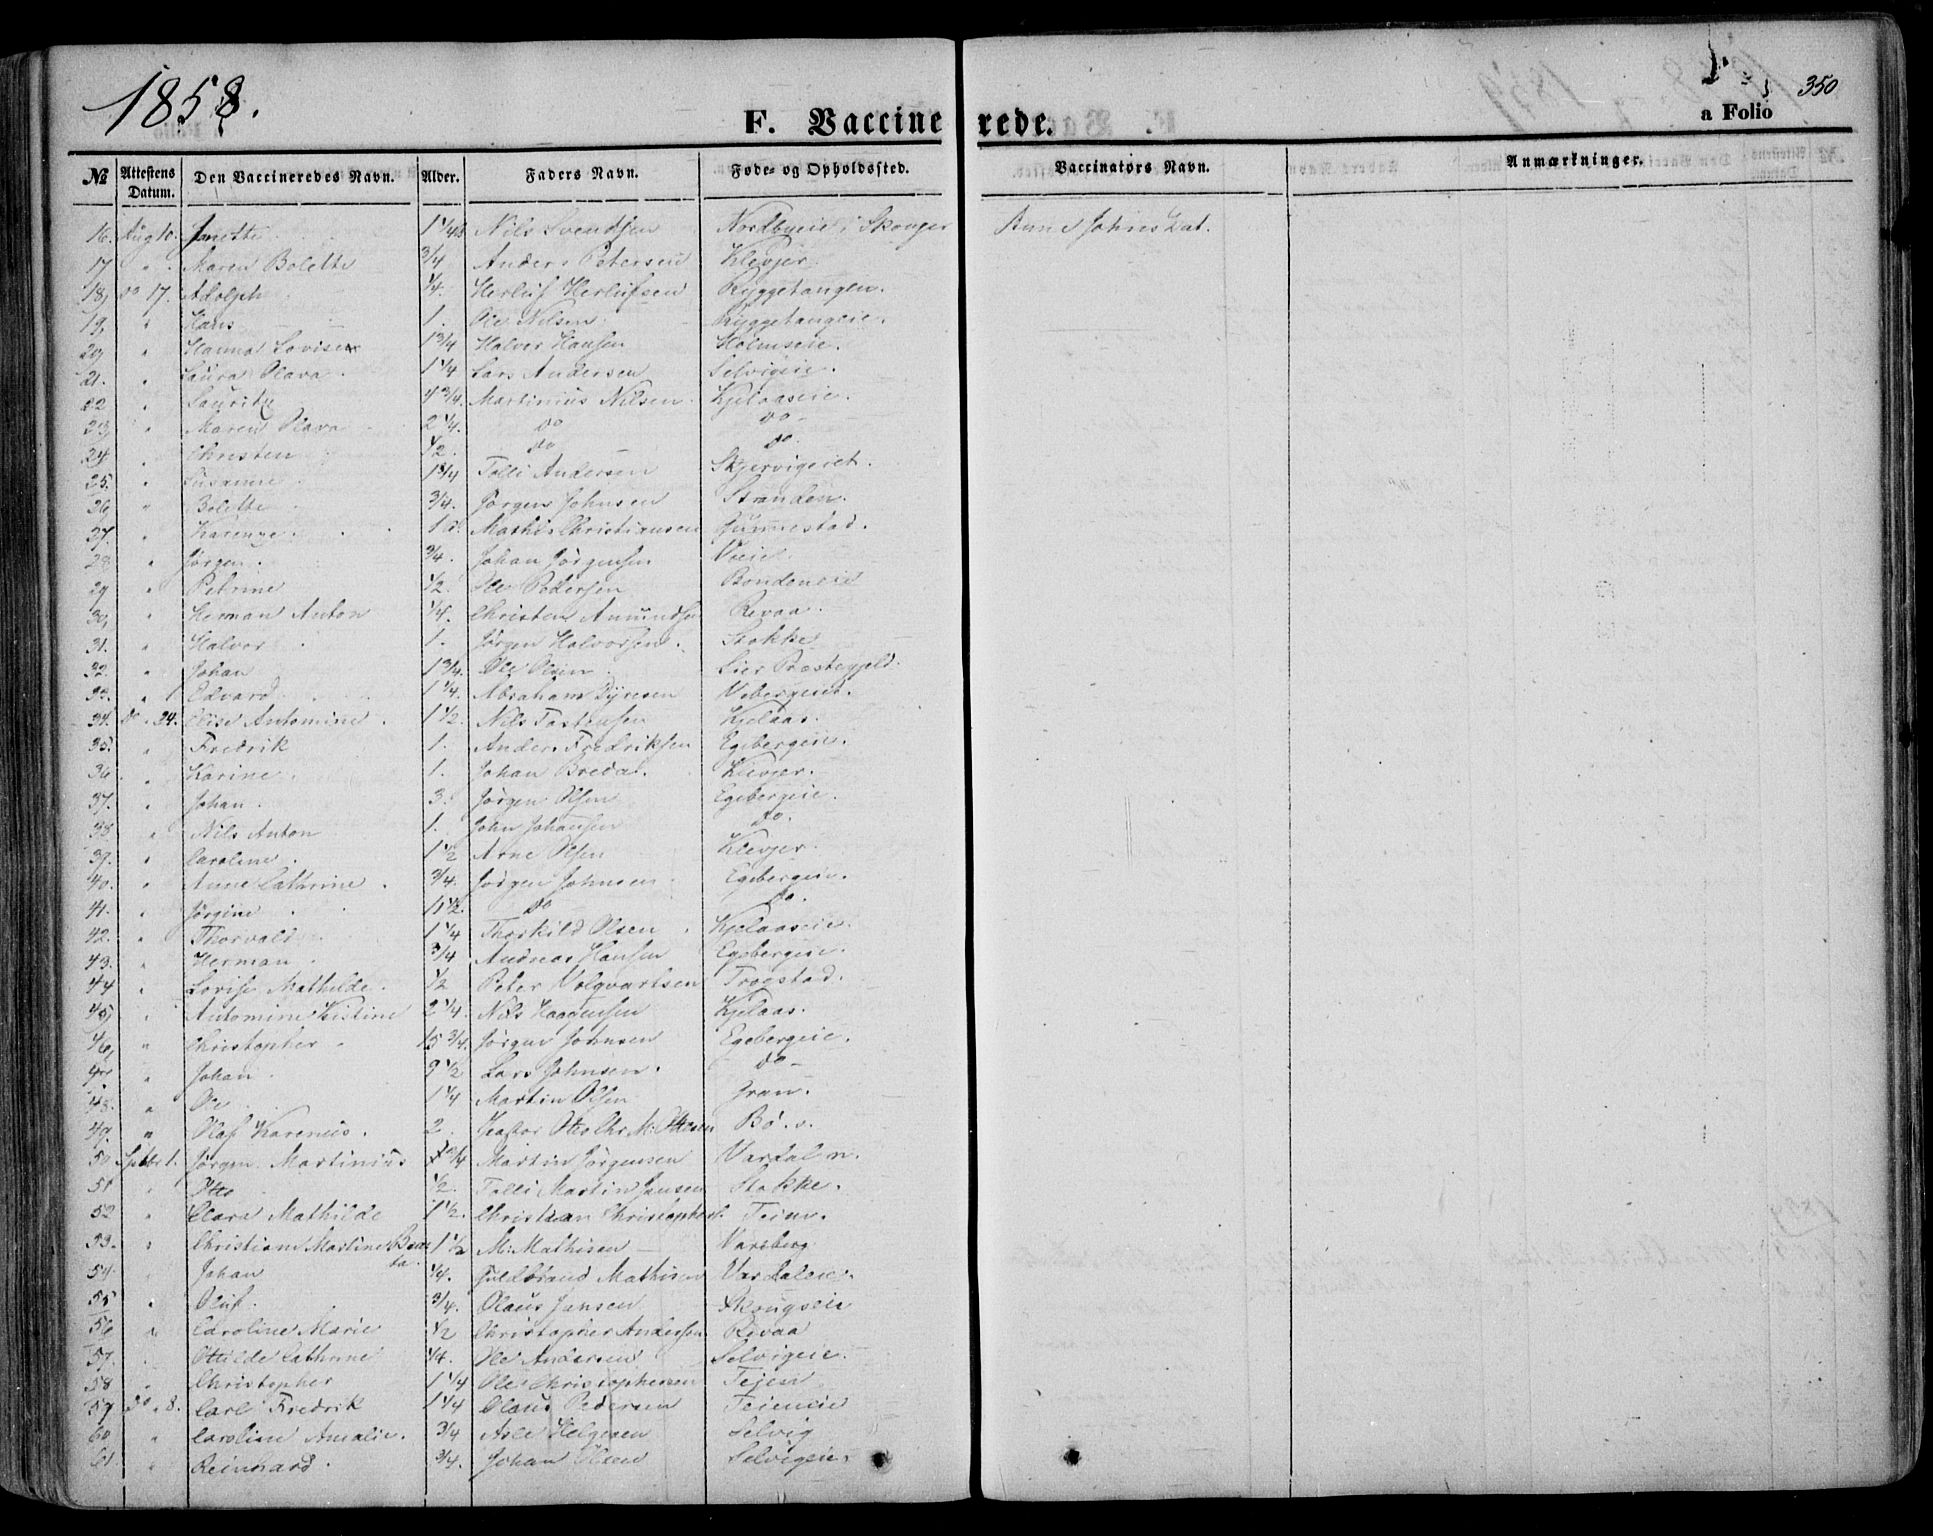 1858.
350
F. Vaccinerede.
a Folio
№ Attestens Datum. Den Vaccineredes Navn. Alder. Faders Navn. Føde- og Opholdssted. Vaccinators Navn. Anmærkninger.
16. Aug 10. Janette 1 1/4 Nils Svendsen Nordbyeie i Skouger Anne Johns Dat.
17 " Maren Bolette 3/4 Anders Petersen Klevjer
18, do 17. Adolph 1/4. Herluf Herlufsen Ryggetangen.
19, " Hans 1. Ole Nilsen Ryggetangeie.
20, " Hanna Lovise 1 3/4 Halvor Hansen Holmseie.
21. " Laura Olava 1 1/4 Lars Andersen Selvigeie.
22 " Lauritz 4 3/4. Martinius Nilsen Kjelaaseie.
23, " Maren Olava 2 1/4. do do
24. " Christen 1/2. do do
25. " Susanne 1 3/4 Tolli Andersen Skjervigeiet.
26, " Bolette 3/4. Jørgen Johnsen Stranden.
27. " Karenze 1 Mathis Christiansen Gunnestad.
28 " Jørgen. 3/4. Johan Jørgensen
29 " Petrine 1/2. Ole Pedersen Bondeneie
30, " Herman Anton 1/4. Christen Amundsen Revaa
31. " Halvor 1. Jørgen Halvorsen. Stokke
32. " Johan 1 3/4. Ole Olsen Lier Præstegjeld.
33. " Edvard 1 1/4. Abraham Dyresen Vebergeiet.
34. do 24. Elise Antomine 1 1/2. Nils Tostensen Kjelaas.
35. " Fredrik 1. Anders Fredriksen Egebergeie.
36 " Karine. 1. Johan Bredal. Klevjer.
37. " Johan. 3. Jørgen Olsen Egebergeie.
38 " Nils Anton 1. John Johansen do.
39. " Caroline. 1 1/2 Arne Olsen Klevjer
40. " Anne Cathrine 3/4. Jørgen Johnsen Egebergeie.
41. " Jørgine 11 1/2. do do.
42. " Thorvald 1 1/4 Thorkild Olsen Kjelaaseie.
43. " Herman 3/4 Andreas Hansen Egebergeie.
44 " Lovise Mathilde. 1/2 Peter Volqvartsen Troestad.
45, " Antomine Kistine 2 1/4. Nils Haagensen Kjelaas.
46, " Christopher 15 3/4. Jørgen Johnsen Egebergeie.
47 " Johan. 9 1/2 Lars Johnsen. do
48. " Ole 1 1/4 Martin Olsen Gran.
49. " Olaf Karenius. 2. Pastor Otto Chr. M: Ottesen Bø.
50 Sptbr 1. Jørgen Martinius 3/4 Martin Jørgensen Vardalen.
51 " Otto 1/2. Tolli Martin Jansen Stokke.
52 " Clara Mathilde 1 1/2. Christian Christophers.
53. " Christiane Martine Beata. 1 1/2 M: Mathisen Varsberg
54. " Johan 1/4. Guldbrand Mathisen Vardaleie.
55 " Oluf. 3/4. Olaus Jansen Skougseie
56 " Caroline Marie 1/2 Christopher Andersen Revaa
57. Ottilde Cathrine 1/4. Ole Andersen Selvigeie.
58 " Christopher 1 1/4 Ole Christophersen Tejen
59 do 8. Carl Fredrik 1 1/4 Olaus Pedersen Teieneie
60 " Caroline Amalie. 3/4 Asle Helgesen Selvig
61 " Reinhard. 3/4. Johan Olsen Selvigeie.